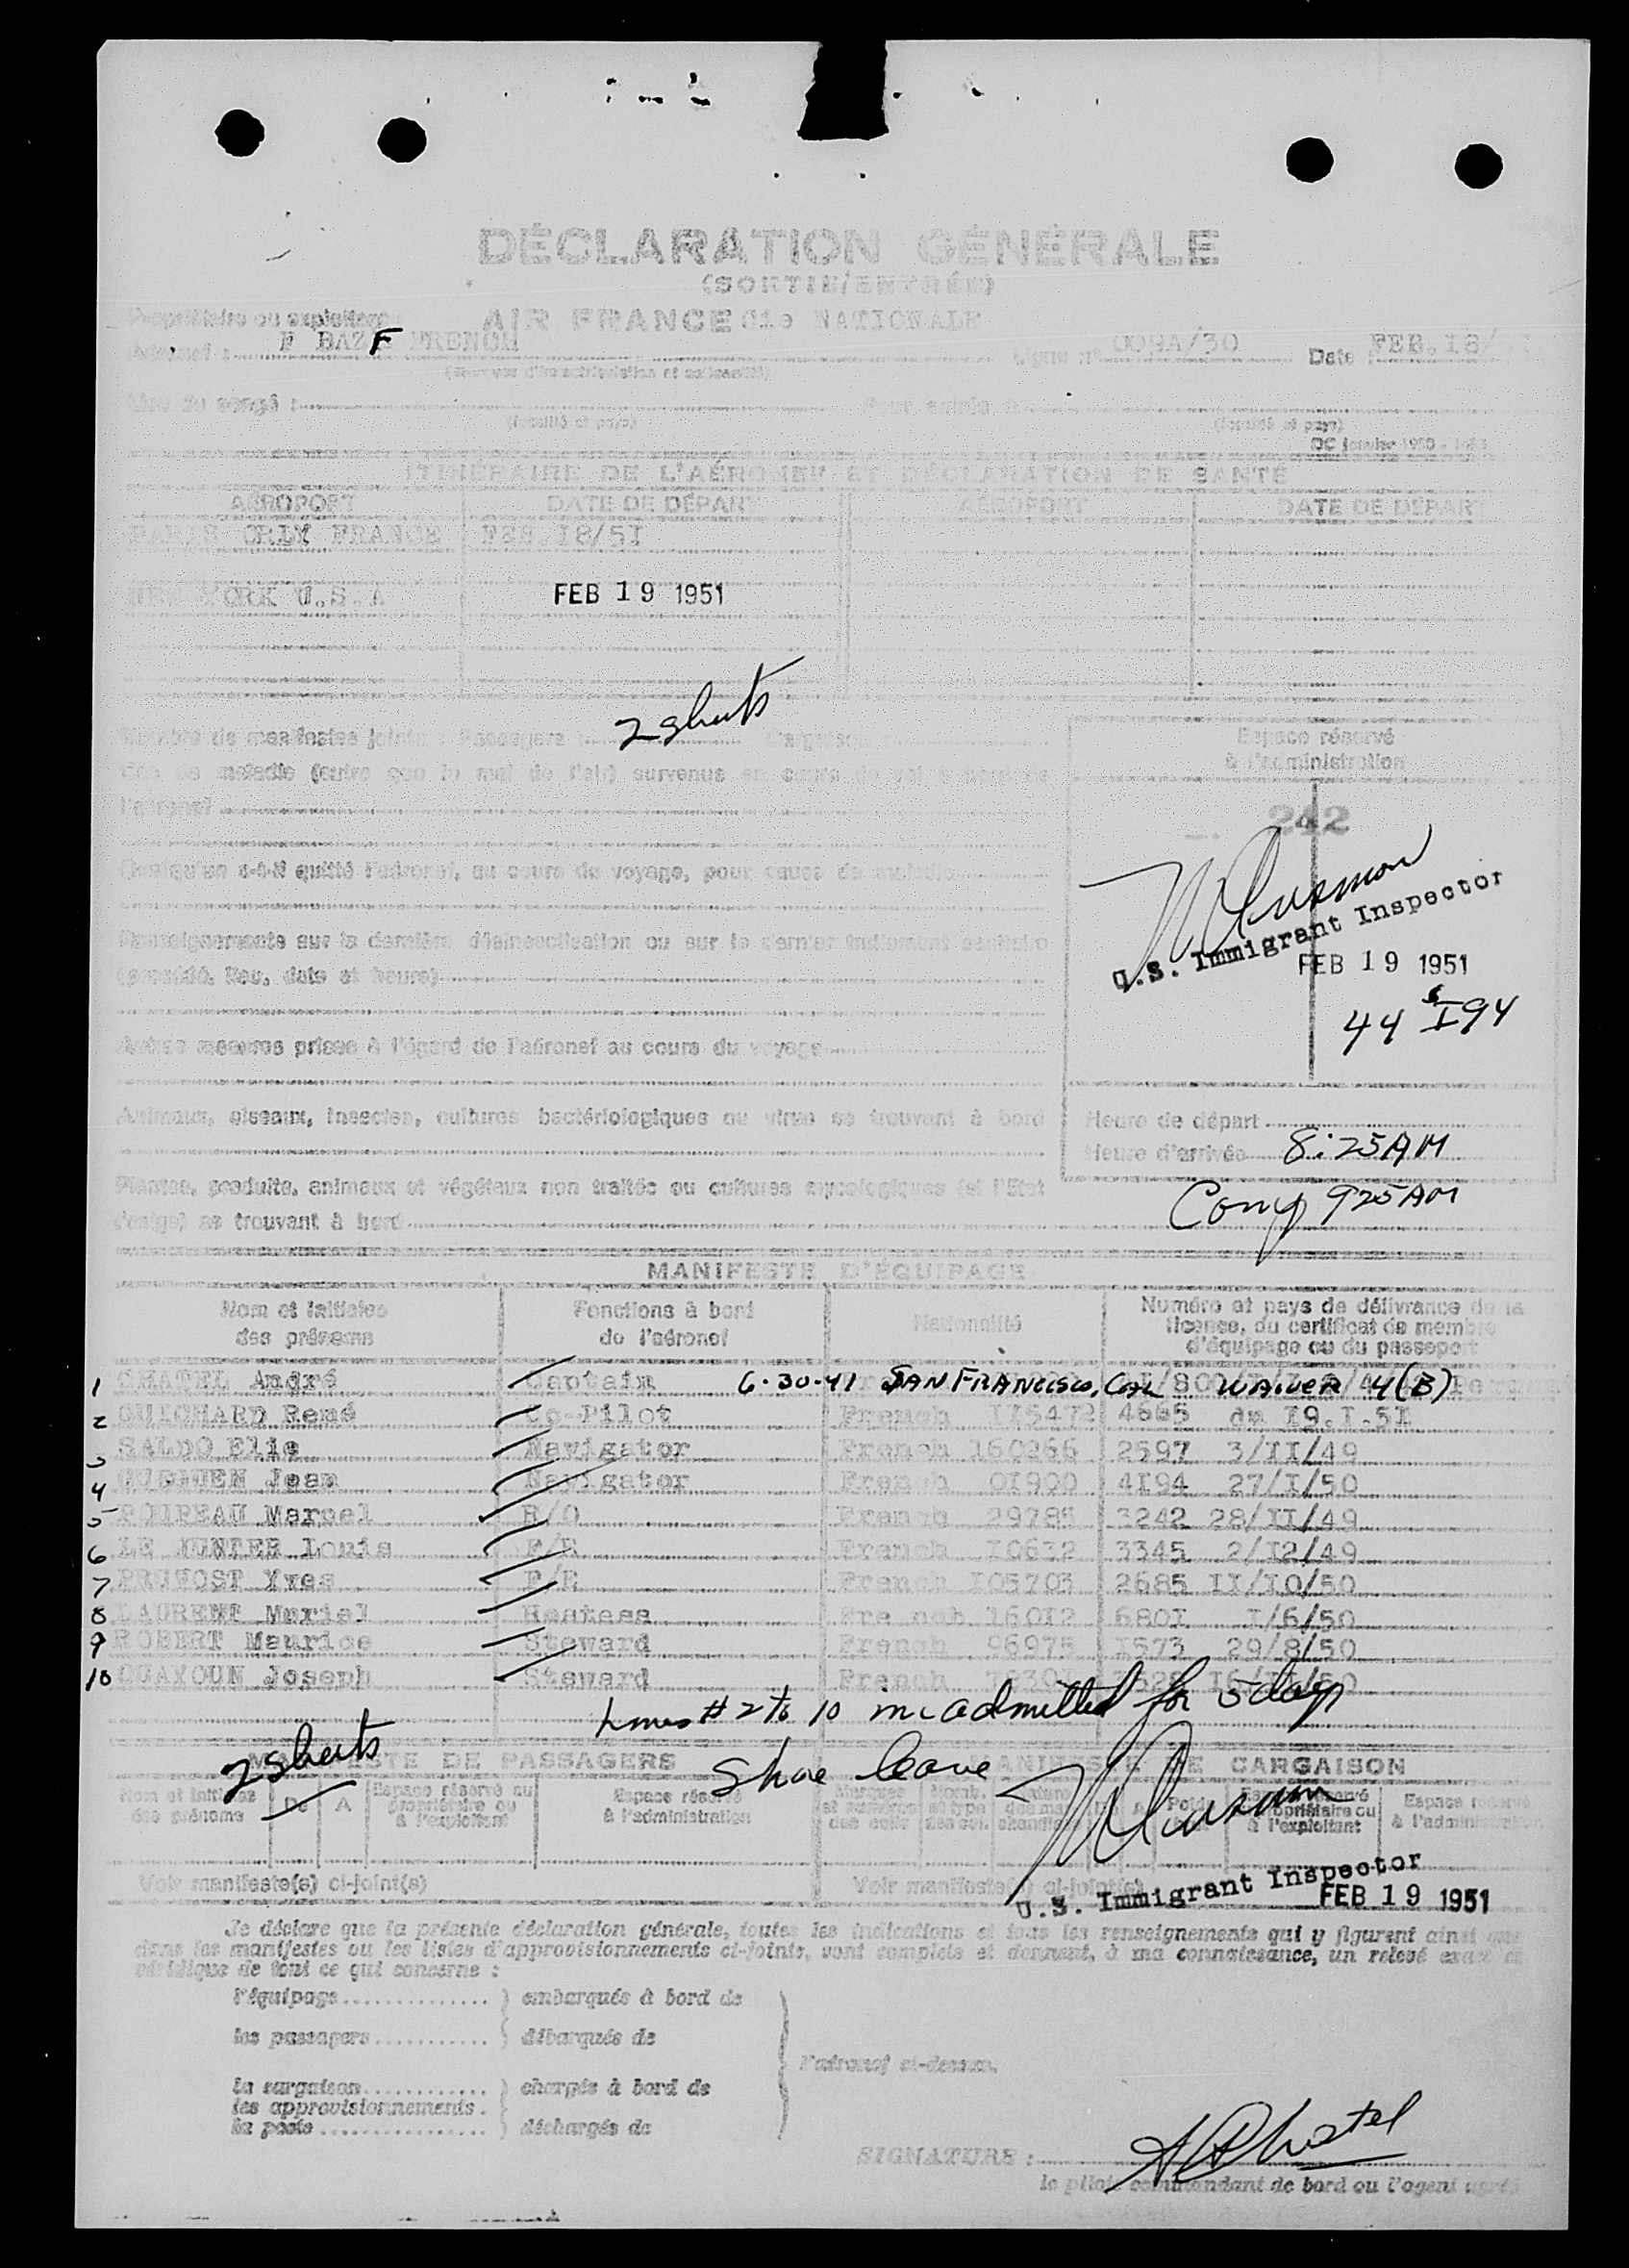 DÉCLARATION GÉNÉRALE
(SORTIE/ENTRÉE)
Propriétaire ou exploitant: AIR FRANCE Cie NATIONALE
F BAZ F FRENCH 009A/30 Date FEB.18/
(localité et pays) (localité et pays)
OC janvier 1950
ITINÉRAIRE DE L'AÉRONEF ET DÉCLARATION DE SANTÉ
AÉROPORT DATE DE DÉPART AÉROPORT DATE DE DÉPART
PARIS ORLY FRANCE FEB 18/51
NEW YORK U.S.A FEB 19 1951
2 sheets
Nombre de manifestes joints : Passagers Cargaison
Cas de maladie (autre que le mal de l'air) survenus en cours de vol
l'aéronef
Espace réservé
à l'administration
242
Quelqu'un a-t-il quitté l'aéronef, au cours du voyage, pour cause de maladie
U.S. Immigrant Inspector
FEB 19 1951
44 I94
Renseignements sur la dernière désinsectisation ou sur le dernier traitement sanitaire
(procédé, lieu, date et heure)
Autres mesures prises à l'égard de l'aéronef au cours du voyage
Animaux, oiseaux, insectes, cultures bactériologiques ou virus se trouvant à bord
Heure de départ
Heure d'arrivée 8:25AM
Plantes, produits, animaux et végétaux non traités ou cultures mycologiques (si l'Etat
l'exige) se trouvant à bord
Comp 925 AM
MANIFESTE D'ÉQUIPAGE
Nom et initiales des prénoms Fonctions à bord de l'aéronef Nationalité Numéro et pays de délivrance de la licence, du certificat de membre d'équipage ou du passeport
1 CHATEL André Captain 6-30-41 SAN FRANCISCO, CAL WAIVER 4(B)
2 GUICHARD René Co-Pilot French 115472 4665 du 19.I.51
3 SALDO Elie Navigator French 160266 2597 3/II/49
4 Jean Navigator French 01900 4194 27/I/50
5 POIREAU Marcel R/O French 29785 3242 28/II/49
6 LE Louis F/E French 10632 3345 2/12/49
7 PRUVOST Yves F/E French 105703 2685 II/10/50
8 LAURENT Muriel Hostess French 16012 6801 1/6/50
9 ROBERT Maurice Steward French 96975 1573 29/8/50
10 OUAYOUN Joseph Steward French
Lines #2 to 10 inc admitted for 5 days
shore leave
2 sheets
MANIFESTE DE PASSAGERS MANIFESTE DE CARGAISON
Nom et initiales des prénoms De A Espace réservé au propriétaire ou à l'exploitant Espace réservé à l'administration
Marques et numéros des colis Nomb. et type des col. Nature des marchandises De A Poids Espace réservé propriétaire ou à l'exploitant Espace réservé à l'administration
Voir manifeste(s) ci-joint(s) Voir manifeste(s) ci-joint(s)
U.S. Immigrant Inspector
FEB 19 1951
Je déclare que la présente déclaration générale, toutes les indications et tous les renseignements qui y figurent ainsi que
dans les manifestes ou les listes d'approvisionnements ci-joints, sont complets et donnent, à ma connaissance, un relevé exact et
véridique de tout ce qui concerne :
l'équipage embarqués à bord de
les passagers débarqués de
l'aéronef ci-dessus.
la cargaison chargés à bord de
les approvisionnements
la poste déchargés de
SIGNATURE : A Chatel
le pilote commandant de bord ou l'agent agréé